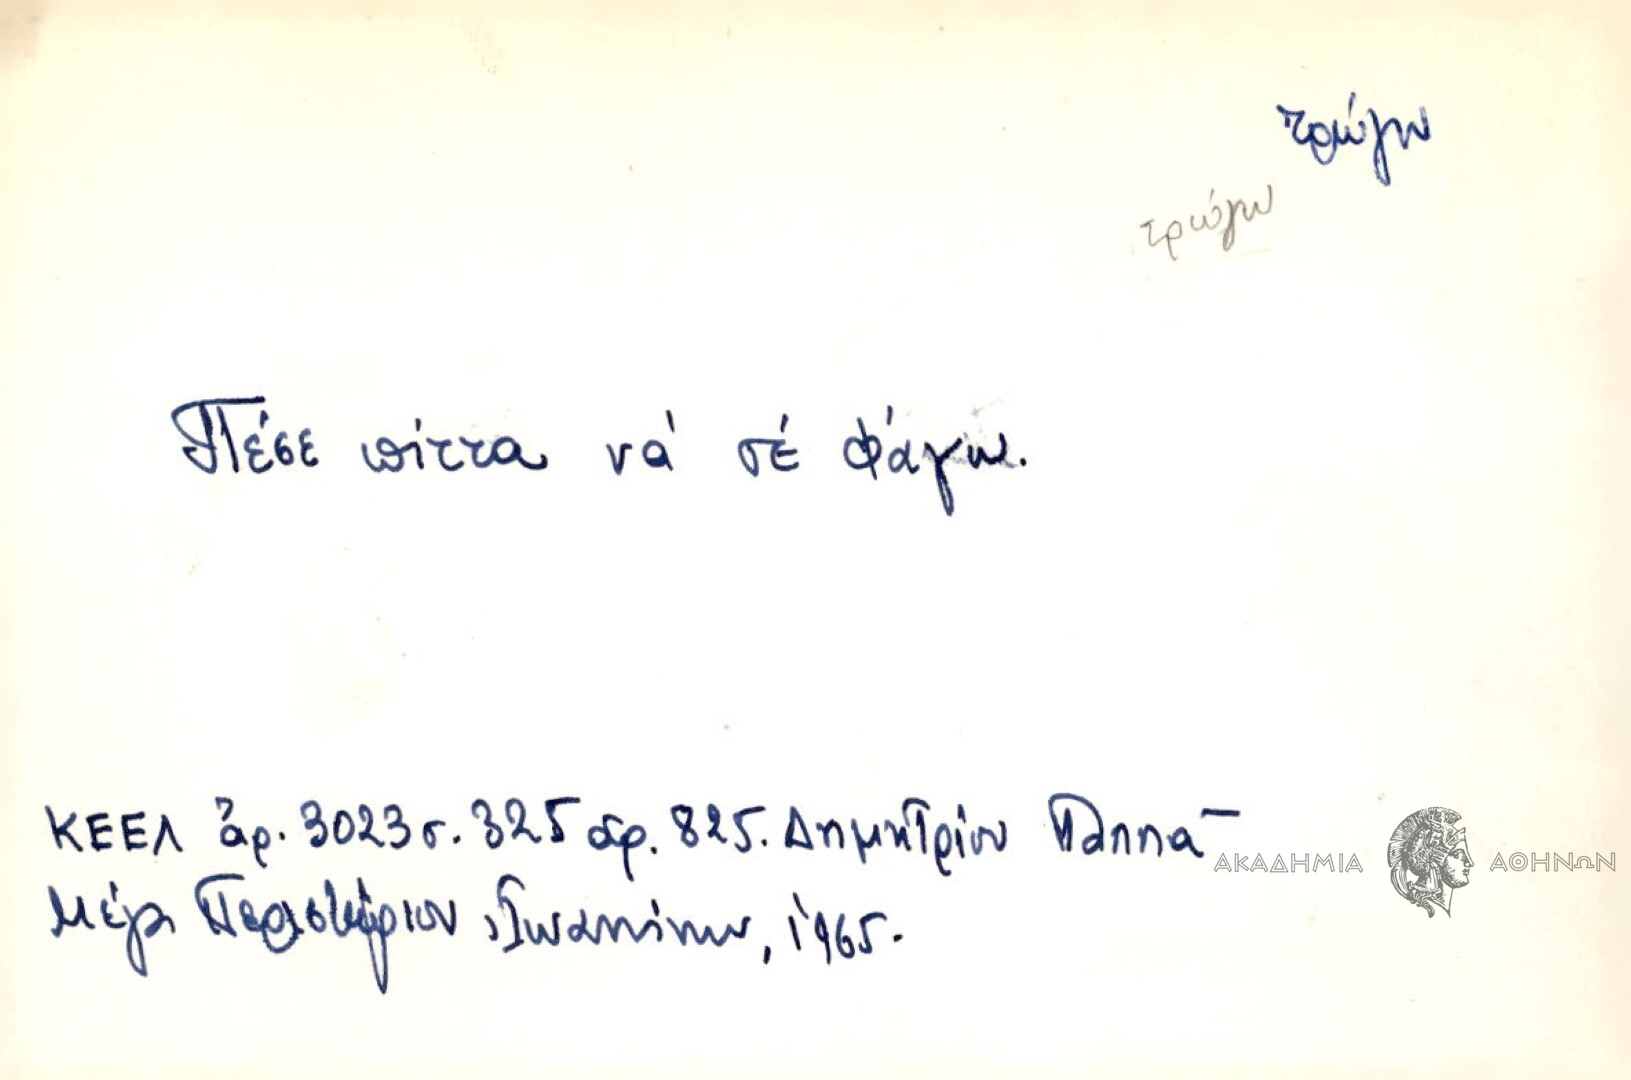 τρώγω
τρώγω
Πέσε πίττα νά σέ φάγω.
ΚΕΕΛ ἀρ. 3023 σ. 325 αρ. 825. Δημητρίου Παππᾶ
Μέγα Περιστέριον Ἰωαννίνων, 1965.
ΑΚΑΔΗΜΙΑ ΑΘΗΝΩΝ